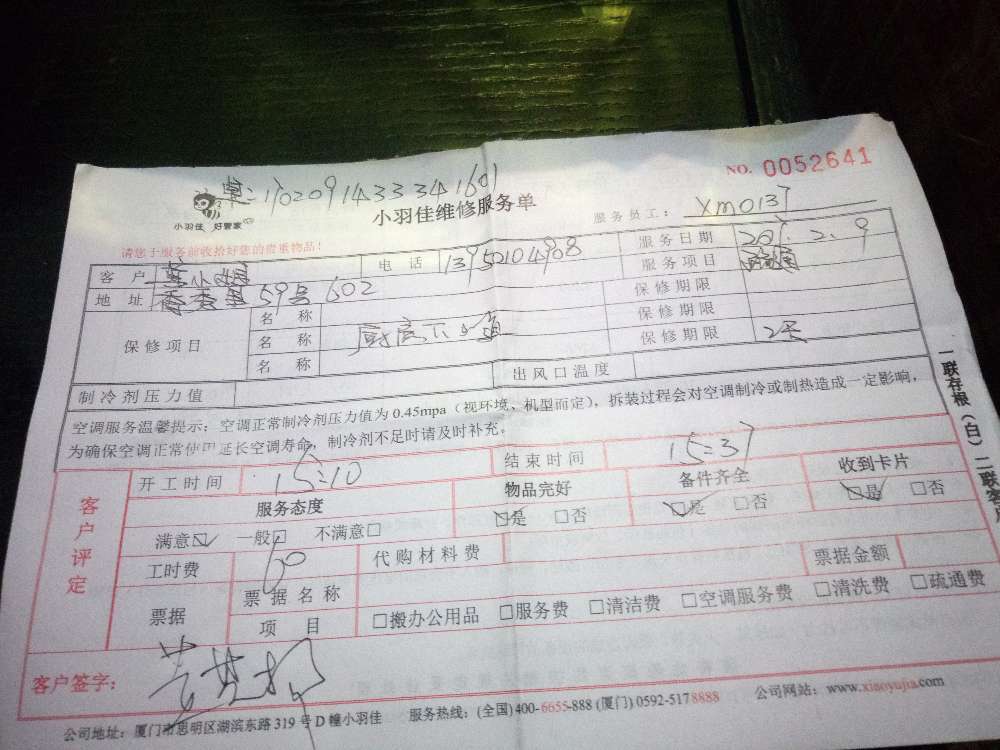 NO. 0052641
单:1702091433341601
小羽佳 好管家
小羽佳维修服务单
服务员工: XM0137
请您于服务前收拾好您的贵重物品!
客户 小姐 电话 13950104988 服务日期 2017.2.9
地址 59号602 服务项目
保修项目 名称 保修期限
名称 厨房下水道 保修期限
名称 保修期限 2天
制冷剂压力值 出风口温度
空调服务温馨提示:空调正常制冷剂压力值为0.45mpa(视环境、机型而定),拆装过程会对空调制冷或制热造成一定影响,
为确保空调正常使用延长空调寿命,制冷剂不足时请及时补充。
一联存根(白)二联客户
客户评定
开工时间 15:10 结束时间 15:37
服务态度 物品完好 备件齐全 收到卡片
满意☑ 一般□ 不满意□ ☑是 □否 ☑是 □否 ☑是 □否
工时费 60 代购材料费
票据 票据名称 票据金额
项目 □搬办公用品 □服务费 □清洁费 □空调服务费 □清洗费 □疏通费
客户签字:
公司地址:厦门市思明区湖滨东路319号D幢小羽佳 服务热线:(全国)400-6655-888 (厦门)0592-5178888 公司网站:www.xiaoyujia.com